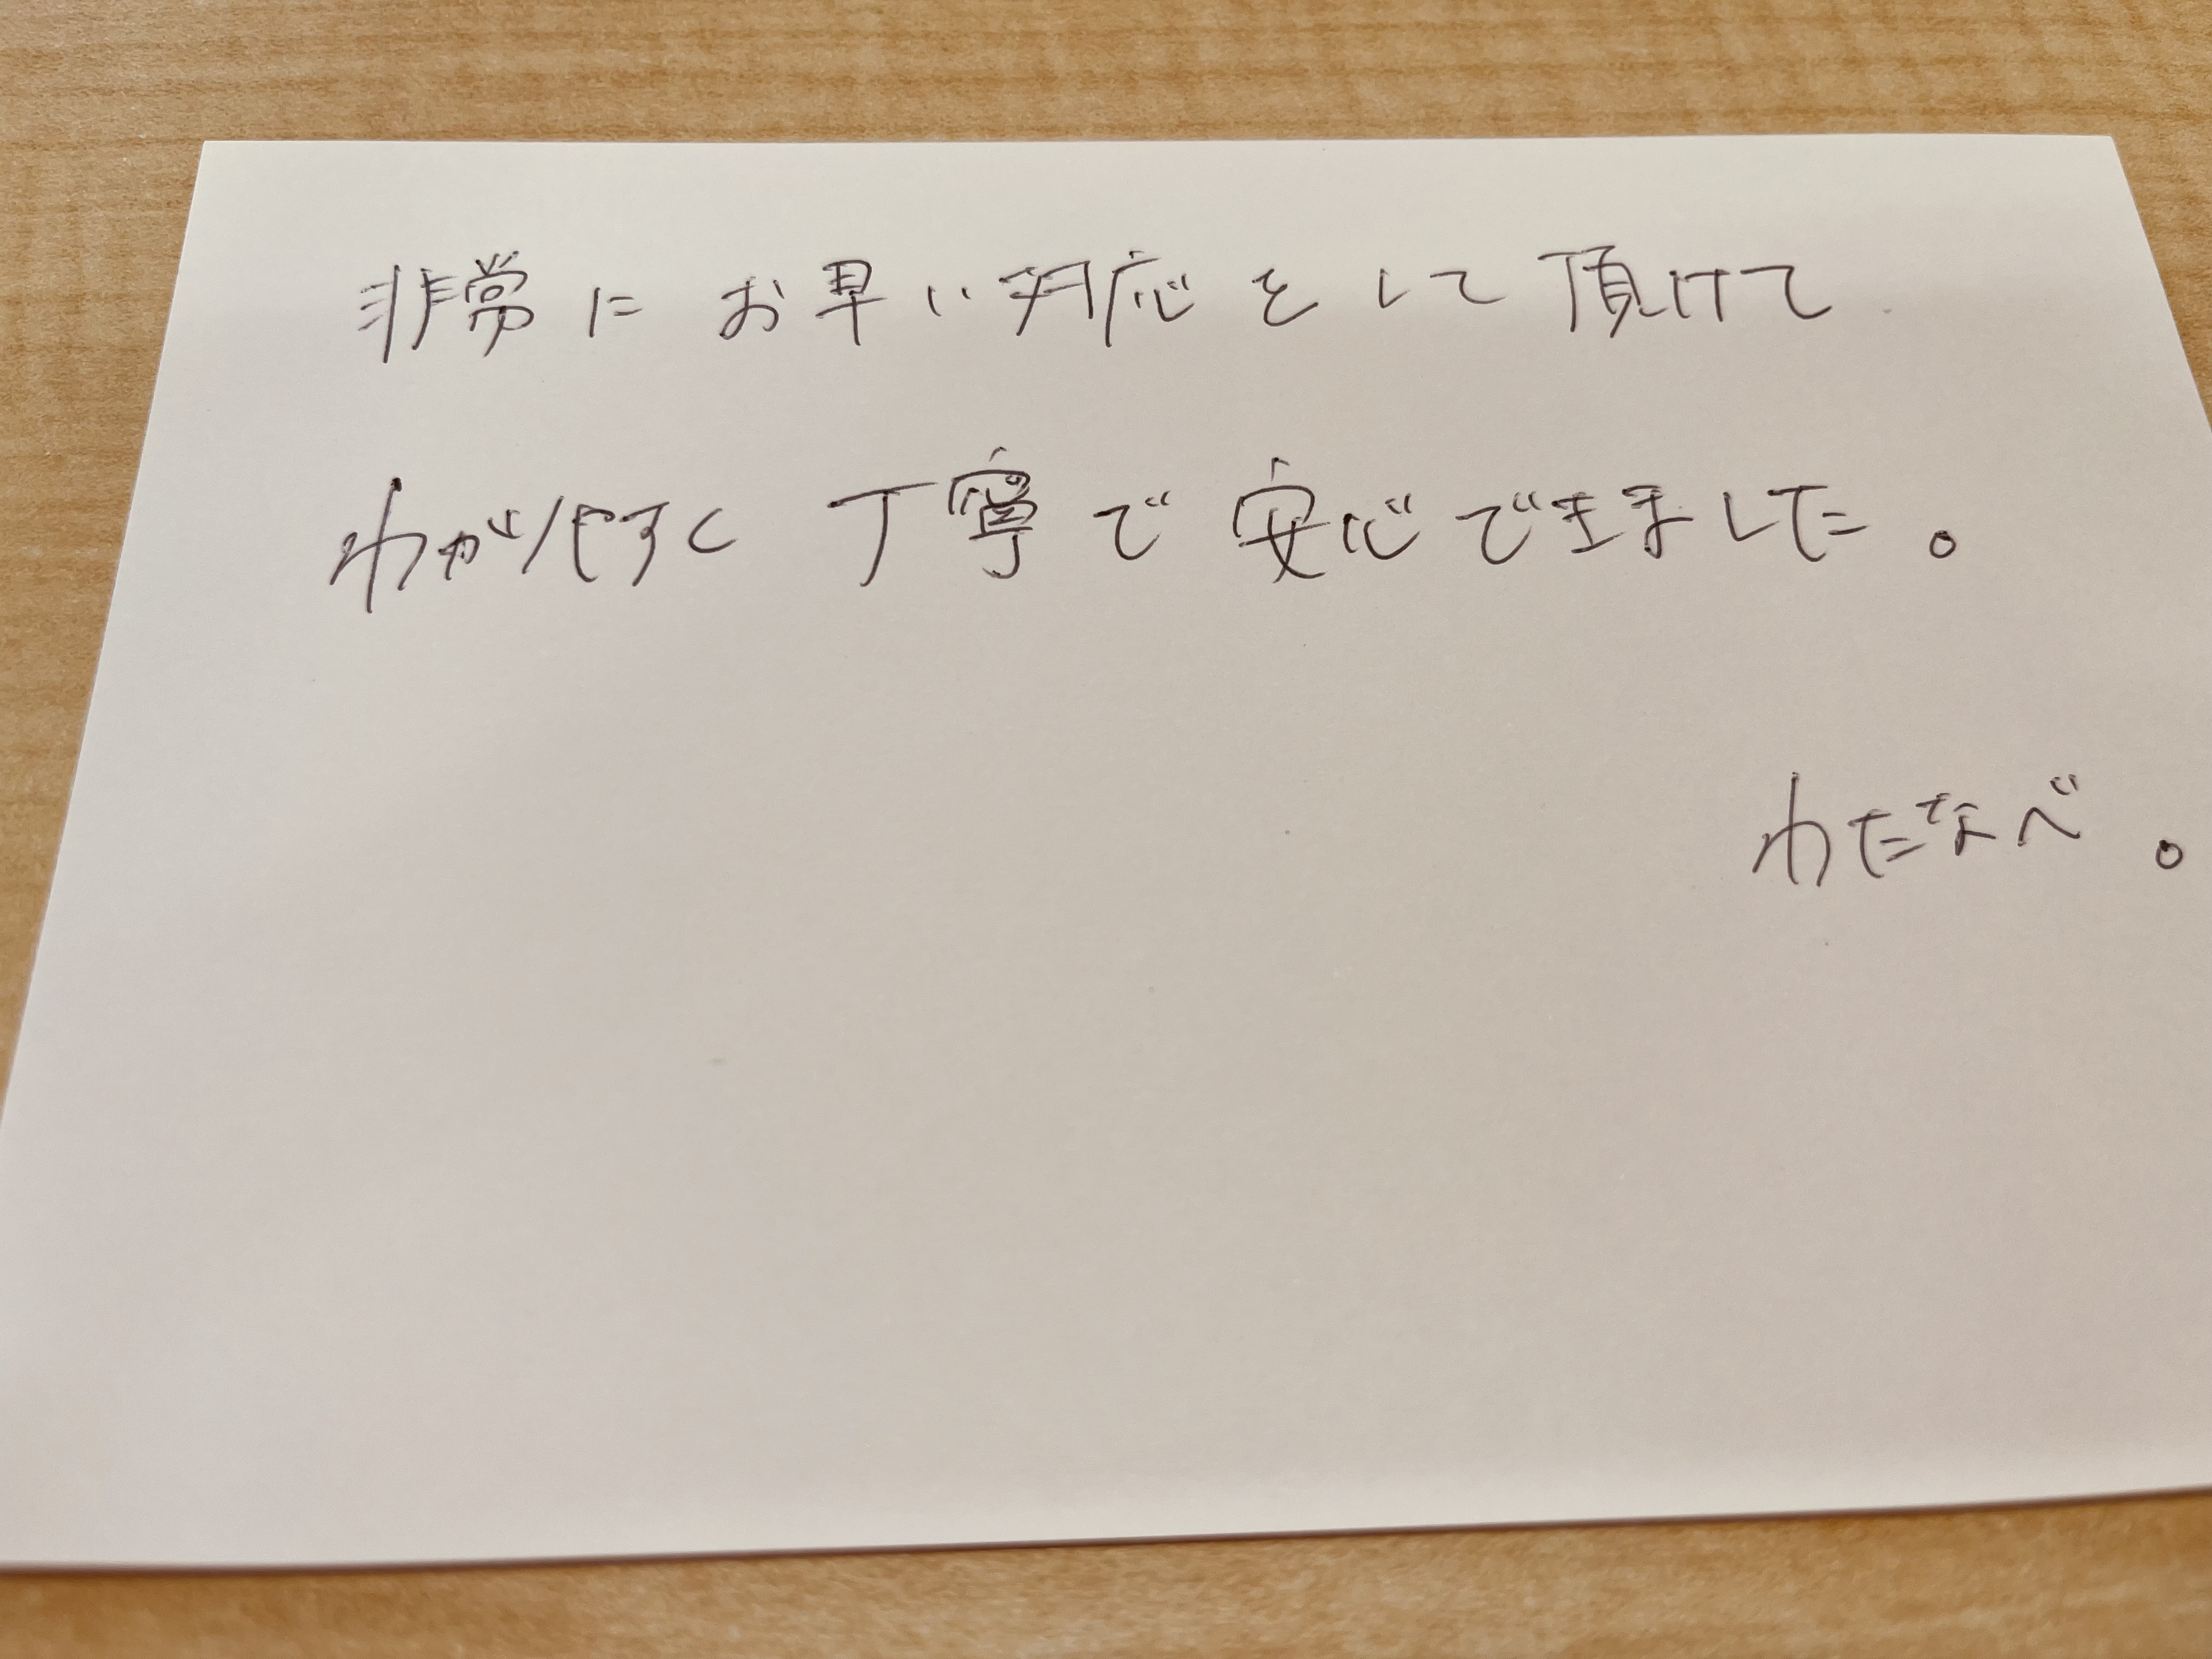 非常にお早い対応をして頂けて
わかりやすく丁寧で安心できました。
わたなべ。